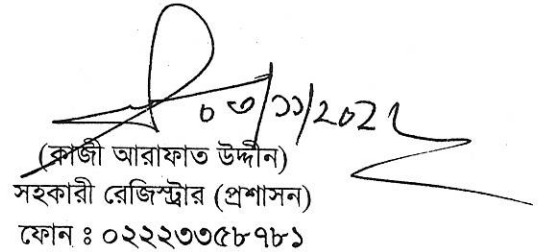 ০৩/১১/2021
(কাজী আরাফাত উদ্দীন)
সহকারী রেজিস্ট্রার (প্রশাসন)
ফোন ঃ ০২২২৩৩৫৮৭৮১